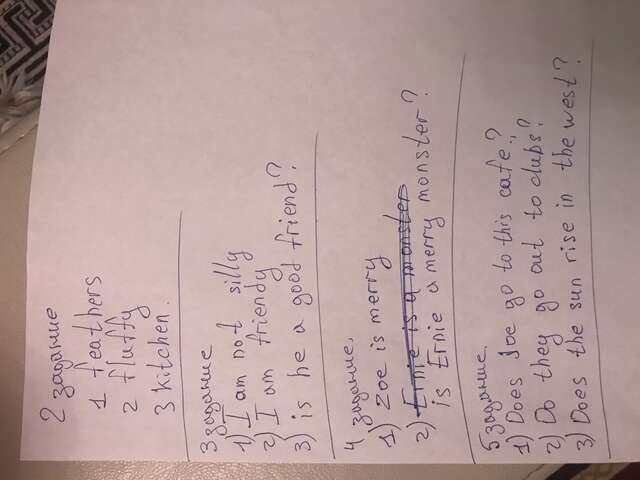 2 задание
1 feathers
2 fluffy
3 kitchen.
3 задание
1) I am not silly
2) I am friendy
3) is he a good friend?
4 задание,
1) Zoe is merry
2) Ernie is a monster
is Ernie a merry monster?
5 задание.
1) Does Joe go to this cafe?
2) Do they go out to clubs?
3) Does the sun rise in the west?